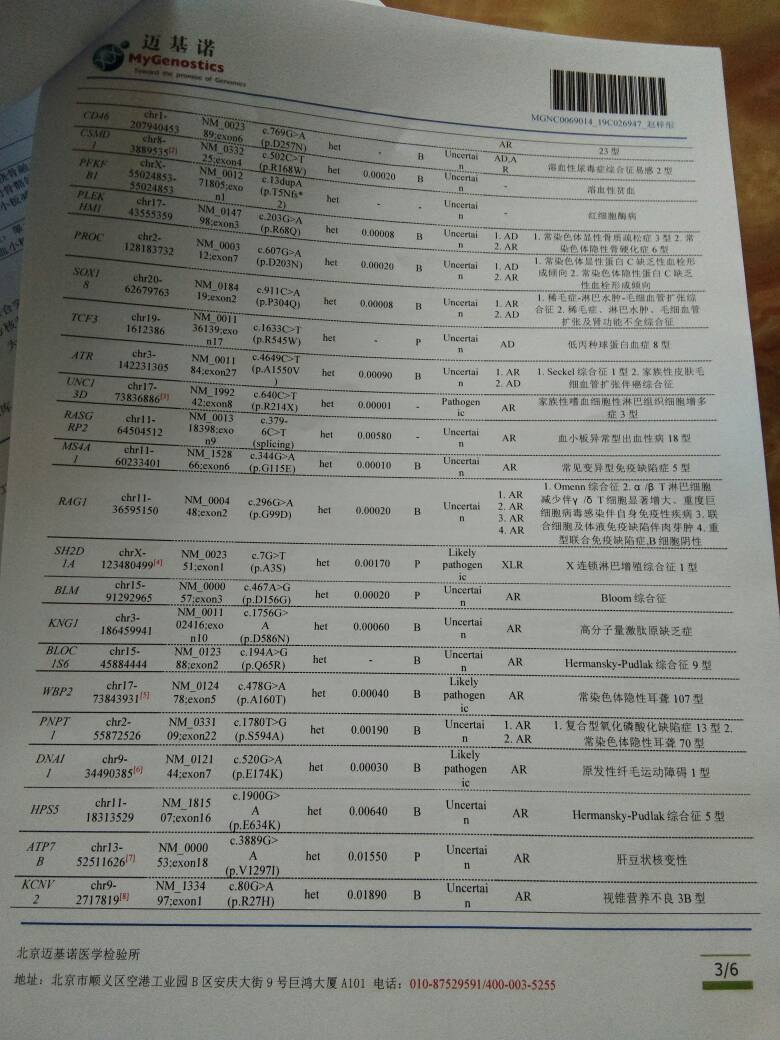 迈基诺
MyGenostics
Toward the promise of Genomics
MGNC0069014_19C026947_赵梓彤
CD46 chr1-207940453 NM_002389;exon6 c.769G>A (p.D257N) het - B Uncertain AR 23 型
CSMD1 chr8-3889535[2] NM_033225;exon4 c.502C>T (p.R168W) het 0.00020 B Uncertain AD,AR 溶血性尿毒症综合征易感 2 型
PFKFB1 chrX-55024853-55024853 NM_001271805;exon1 c.13dupA (p.T5Nfs*2) het - - Uncertain - 溶血性贫血
PLEKHM1 chr17-43555359 NM_014798;exon3 c.203G>A (p.R68Q) het 0.00008 B Uncertain - 红细胞酶病
PROC chr2-128183732 NM_000312;exon7 c.607G>A (p.D203N) het 0.00020 B Uncertain 1. AD 2. AR 1. 常染色体显性骨质疏松症 3 型 2. 常染色体隐性骨硬化症 6 型
SOX18 chr20-62679763 NM_018419;exon2 c.911C>A (p.P304Q) het 0.00008 B Uncertain 1. AD 2. AR 1. 常染色体显性蛋白 C 缺乏性血栓形成倾向 2. 常染色体隐性蛋白 C 缺乏性血栓形成倾向
TCF3 chr19-1612386 NM_001136139;exon17 c.1633C>T (p.R545W) het - P Uncertain 1. AR 2. AD 1. 稀毛症-淋巴水肿-毛细血管扩张综合征 2. 稀毛症、淋巴水肿、毛细血管扩张及肾功能不全综合征
AD 低丙种球蛋白血症 8 型
ATR chr3-142231305 NM_001184;exon27 c.4649C>T (p.A1550V) het 0.00090 B Uncertain 1. AR 2. AD 1. Seckel 综合征 1 型 2. 家族性皮肤毛细血管扩张伴癌综合征
UNC13D chr17-73836886[3] NM_199242;exon8 c.640C>T (p.R214X) het 0.00001 - Pathogenic AR 家族性嗜血细胞性淋巴组织细胞增多症 3 型
RASGRP2 chr11-64504512 NM_001318398;exon9 c.379-6C>T (splicing) het 0.00580 - Uncertain AR 血小板异常型出血性病 18 型
MS4A1 chr11-60233401 NM_152866;exon6 c.344G>A (p.G115E) het 0.00010 B Uncertain AR 常见变异型免疫缺陷症 5 型
RAG1 chr11-36595150 NM_000448;exon2 c.296G>A (p.G99D) het 0.00020 B Uncertain 1. AR 2. AR 3. AR 4. AR 1. Omenn 综合征 2. α/β T 淋巴细胞减少伴γ/δ T 细胞显著增大、重度巨细胞病毒感染伴自身免疫性疾病 3. 联合细胞及体液免疫缺陷伴肉芽肿 4. 重型联合免疫缺陷症,B 细胞阴性
SH2D1A chrX-123480499[4] NM_002351;exon1 c.7G>T (p.A3S) het 0.00170 P Likely pathogenic XLR X 连锁淋巴增殖综合征 1 型
BLM chr15-91292965 NM_000057;exon3 c.467A>G (p.D156G) het 0.00020 P Uncertain AR Bloom 综合征
KNG1 chr3-186459941 NM_001102416;exon10 c.1756G>A (p.D586N) het 0.00060 B Uncertain AR 高分子量激肽原缺乏症
BLOC1S6 chr15-45884444 NM_012388;exon2 c.194A>G (p.Q65R) het - B Uncertain AR Hermansky-Pudlak 综合征 9 型
WBP2 chr17-73843931[5] NM_012478;exon5 c.478G>A (p.A160T) het 0.00040 B Likely pathogenic AR 常染色体隐性耳聋 107 型
PNPT1 chr2-55872526 NM_033109;exon22 c.1780T>G (p.S594A) het 0.00190 B Uncertain 1. AR 2. AR 1. 复合型氧化磷酸化缺陷症 13 型 2. 常染色体隐性耳聋 70 型
DNAI1 chr9-34490385[6] NM_012144;exon7 c.520G>A (p.E174K) het 0.00030 B Likely pathogenic AR 原发性纤毛运动障碍 1 型
HPS5 chr11-18313529 NM_181507;exon16 c.1900G>A (p.E634K) het 0.00640 B Uncertain AR Hermansky-Pudlak 综合征 5 型
ATP7B chr13-52511626[7] NM_000053;exon18 c.3889G>A (p.V1297I) het 0.01550 P Uncertain AR 肝豆状核变性
KCNV2 chr9-2717819[8] NM_133497;exon1 c.80G>A (p.R27H) het 0.01890 B Uncertain AR 视锥营养不良 3B 型
北京迈基诺医学检验所
地址：北京市顺义区空港工业园 B 区安庆大街 9 号巨鸿大厦 A101 电话：010-87529591/400-003-5255
3/6